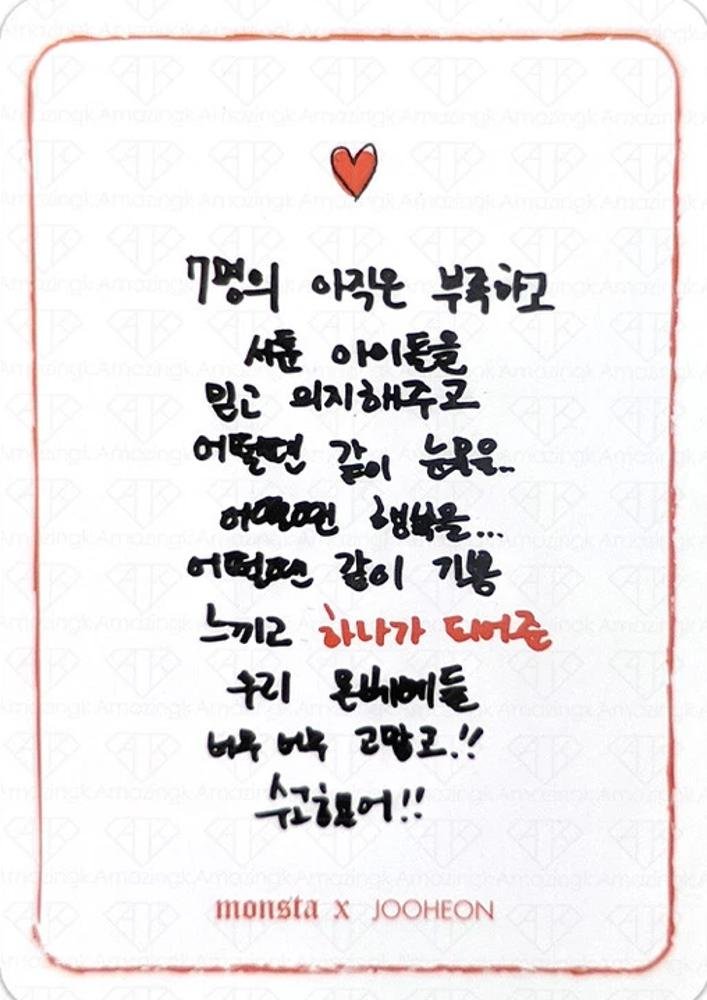 7명의 아직은 부족하고
서툰 아이돌을
믿고 의지해주고
어떨땐 같이 눈물을..
어떨땐 행복을...
어떨땐 같이 기쁨
느끼고 하나가 되어준
우리 몬베베들
너무 너무 고맙고.!!
수고했어!!
monsta x JOOHEON
Amazingk